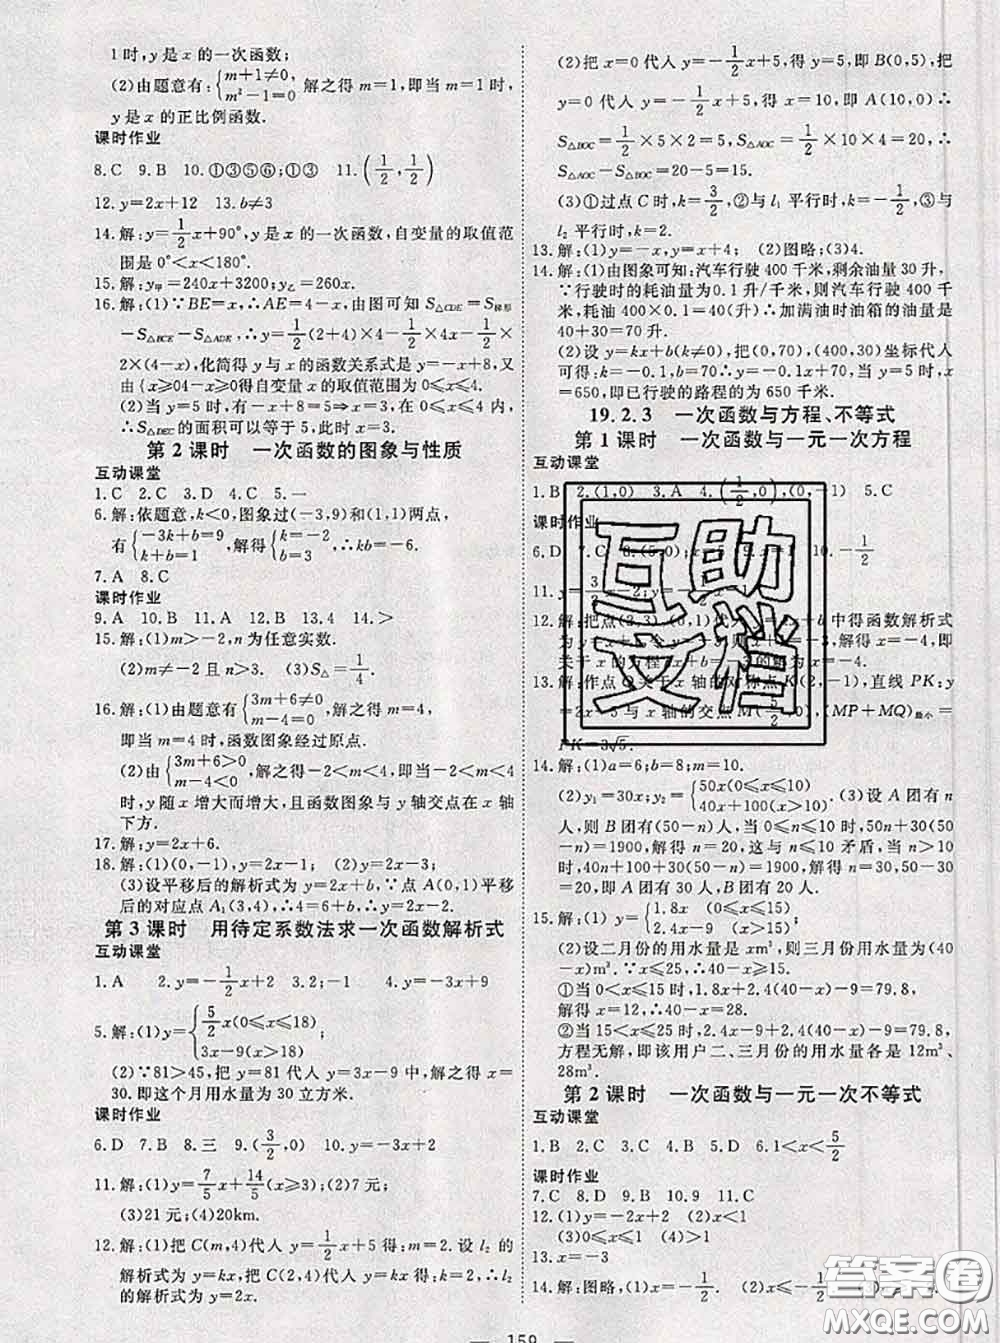 1时,y是x的一次函数;
(2)由题意有:{m+1≠0, m²-1=0 解之得m=1,即当m=1时,
y是x的正比例函数.
课时作业
8.C 9.B 10.①③⑤⑥;①③ 11.(1/2,1/2)
12.y=2x+12 13.b≠3
14.解:y=1/2x+90°,y是x的一次函数,自变量的取值范
围是0°<x<180°.
15.解:y甲=240x+3200;y乙=260x
16.解:(1)∵BE=x,∴AE=4-x,由图可知S△CDE=S梯形
-S△BCE-S△ADE,∴y=1/2(2+4)×4-1/2×4x-1/2×
2×(4-x),化简得y与x的函数关系式是y=-x+8,又
由{x≥04-x≥0得自变量x的取值范围为0≤x≤4.
(2)当y=5时,-x+8=5⇒x=3,在0≤x≤4中,∴
S△DEC的面积可以等于5,此时x=3.
第2课时 一次函数的图象与性质
互动课堂
1.C 2.C 3.D 4.C 5.一
6.解:依题意,k<0,图象过(-3,9)和(1,1)两点,
有{-3k+b=9, k+b=1 解得{k=-2, b=3 ∴kb=-6.
7.A 8.C
课时作业
9.A 10.B 11.A 12.B 13.4 14.>
15.解:(1)m>-2,n为任意实数.
(2)m≠-2且n>3. (3)S△=1/4.
16.解:(1)由题意有{3m+6≠0, m-4=0 解之得m=4,
当m=4时,函数图象经过原点.
(2)由{3m+6>0, m-4<0 解之得-2<m<4,即当-2<m<4
时,y随x增大而增大,且函数图象与y轴交点在x轴
下方.
17.解:y=2x+6.
18.解:(1)(0,-1),y=2x-1; (2)y=2x-3;
(3)设平移后的解析式为y=2x+b,∵点A(0,1)平移
后的对应点A₁(3,4),∴4=6+b,∴b=-2,
∴平移后的解析式为y=2x-2.
第3课时 用待定系数法求一次函数解析式
互动课堂
1.A 2.y=-1/2x+2 3.2;-1 4.y=-3x+9
5.解:(1)y={5/2x(0≤x≤18) 3x-9(x>18)
(2)∵81>45,把y=81代入y=3x-9中,解得x=
30.即这个月用水量为30立方米.
课时作业
6.D 7.B 8.三 9.(3/2,0) 10.y=-3x+2
11.解:(1)y=7/5x+14/5(x≥3);(2)7元;
(3)21元;(4)20km.
12.解:(1)把C(m,4)代入y=-1/2x+5得:m=2.设l₂的
解析式为y=kx,把C(2,4)代入y=kx得k=2.∴l₂
的解析式为y=2x.
(2)把x=0代入y=-1/2x+5得y=5,即B(0,5),把
y=0代入y=-1/2x+5,得x=10,即A(10,0)∴
S△BOC=1/2×5×2=5;S△AOC=1/2×10×4=20;∴
S△AOC-S△BOC=20-5=15.
(3)①过点C时,k=3/2,②与l₁平行时,k=-1/2,③与
l₂平行时,k=2.
13.解:(1)y=-x,y=x+4; (2)图略;(3)4.
14.解:(1)由图象可知:汽车行驶400千米,剩余油量30升,
∵行驶时的耗油量为0.1升/千米,则汽车行驶400千
米,耗油400×0.1=40(升)∴加满油时油箱的油量是
40+30=70升.
(2)设y=kx+b(k≠0),把(0,70),(400,30)坐标代入
可得:k=-0.1,b=70∴y=-0.1x+70,当y=5时,x
=650,即已行驶的路程的为650千米.
19.2.3 一次函数与方程、不等式
第1课时 一次函数与一元一次方程
互动课堂
1.B 2.(1,0) 3.A 4.(1/2,0),(0,-1) 5.C
课时作业
6.D 7.C 8.(5,0);x=5 9.x=1 10.-1/2
12.解:把点(3,-3),(0,1)代入
中得函数解析式
解得x=-4,即
13.解:作点Q关于x轴的对称点K(2,-1),直线PK:y
=2x-5与x轴的交点M(5/2,0),(MP+MQ)最小=
PK=3√5.
14.解:(1)a=6;b=8;m=10.
(2)y₁=30x;y₂={50x(0≤x≤10) 40x+100(x>10). (3)设A团有n
人,则B团有(50-n)人.当0≤n≤10时,50n+30(50
-n)=1900,解得n=20,这与n≤10矛盾,当n>10
时,40n+100+30(50-n)=1900,解得n=30,50-30
=20.即A团有30人,B团有20人.
15.解:(1)y={1.8x (0≤x≤15) 2.4x-9 (x>15)
(2)设二月份的用水量是xm³,则三月份用水量为(40-
x)m³.∵x≤25,∴40-x≥15.
①当0≤x≤15时,1.8x+2.4(40-x)-9=79.8,
解得x=12,∴40-x=28.
②当15<x≤25时,2.4x-9+2.4(40-x)-9=79.8,
方程无解,即该用户二、三月份的用水量各是12m³、
28m³.
第2课时 一次函数与一元一次不等式
互动课堂
1.B 2.C 3.C 4.B 5.D 6.1<x<5/2
课时作业
7.C 8.D 9.B 10.9 11.C
12.(1)y=-2x+2 (2)x<1
(3)0≤x≤1
13.x=-3
14.解:图略,(1)x=-1/2. (2)x≤-1/2.
159
互助
文档
答案圈
MXQE.COM